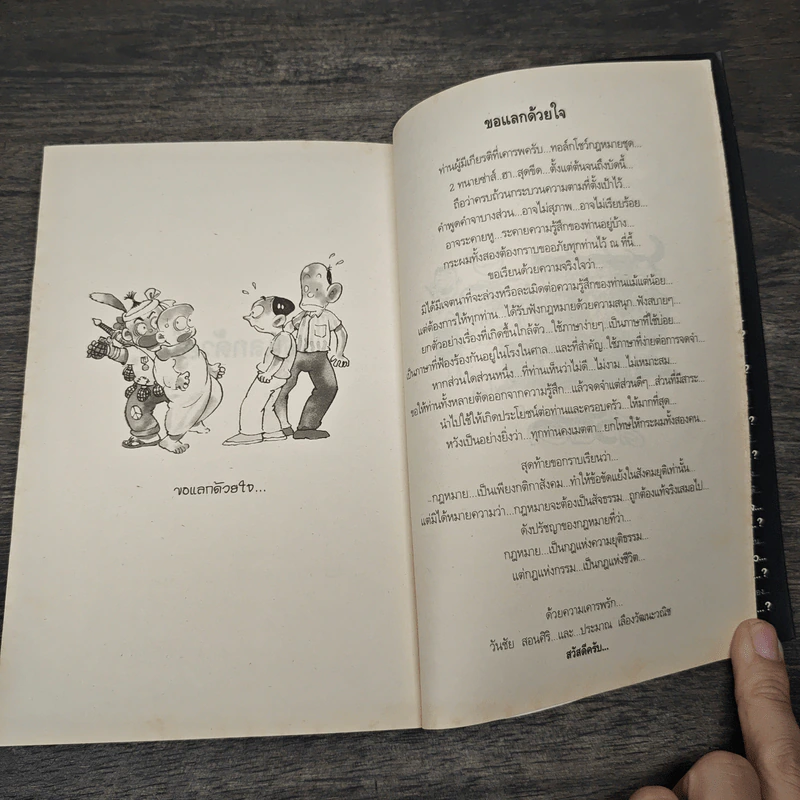 ขอแลกด้วยใจ...
ขอแลกด้วยใจ
ท่านผู้มีเกียรติที่เคารพครับ...ทอล์กโชว์กฎหมายชุด...
2 ทนายซ่าส์...ฮา...สุดขีด...ตั้งแต่ต้นจนถึงบัดนี้...
ถือว่าครบถ้วนกระบวนความตามที่ตั้งเป้าไว้...
คำพูดคำจาบางส่วน...อาจไม่สุภาพ...อาจไม่เรียบร้อย...
อาจระคายหู...ระคายความรู้สึกของท่านอยู่บ้าง...
กระผมทั้งสองต้องกราบขออภัยทุกท่านไว้ ณ ที่นี้...
ขอเรียนด้วยความจริงใจว่า...
มิได้มีเจตนาที่จะล่วงหรือละเมิดต่อความรู้สึกของท่านแม้แต่น้อย...
แต่ต้องการให้ทุกท่าน...ได้รับฟังกฎหมายด้วยความสนุก...ฟังสบายๆ...
ยกตัวอย่างเรื่องที่เกิดขึ้นใกล้ตัว...ใช้ภาษาง่ายๆ...เป็นภาษาที่ใช้บ่อย...
เป็นภาษาที่ฟ้องร้องกันอยู่ในโรงในศาล...และที่สำคัญ...ใช้ภาษาที่ง่ายต่อการจดจำ...
หากส่วนใดส่วนหนึ่ง...ที่ท่านเห็นว่าไม่ดี...ไม่งาม...ไม่เหมาะสม...
ขอให้ท่านทั้งหลายตัดออกจากความรู้สึก...แล้วจดจำแต่ส่วนดีๆ...ส่วนที่มีสาระ...
นำไปใช้ให้เกิดประโยชน์ต่อท่านและครอบครัว...ให้มากที่สุด...
หวังเป็นอย่างยิ่งว่า...ทุกท่านคงเมตตา...ยกโทษให้กระผมทั้งสองคน...
สุดท้ายขอกราบเรียนว่า...
...กฎหมาย...เป็นเพียงกติกาสังคม...ทำให้ข้อขัดแย้งในสังคมยุติเท่านั้น...
แต่มิได้หมายความว่า...กฎหมายจะต้องเป็นสัจธรรม...ถูกต้องแท้จริงเสมอไป...
ดังปรัชญาของกฎหมายที่ว่า...
กฎหมาย...เป็นกฎแห่งความยุติธรรม...
แต่กฎแห่งกรรม...เป็นกฎแห่งชีวิต...
ด้วยความเคารพรัก...
วันชัย สอนศิริ...และ...ประมาณ เลืองวัฒนะวณิช
สวัสดีครับ...